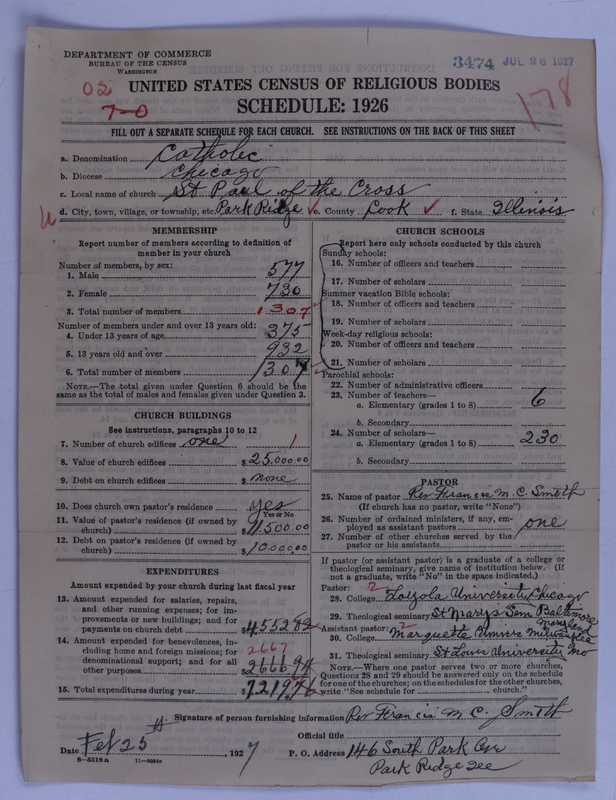 DEPARTMENT OF COMMERCE
BUREAU OF THE CENSUS
WASHINGTON
3474 JUL 26 1927
02
7-0
178
UNITED STATES CENSUS OF RELIGIOUS BODIES
SCHEDULE: 1926
FILL OUT A SEPARATE SCHEDULE FOR EACH CHURCH. SEE INSTRUCTIONS ON THE BACK OF THIS SHEET
a. Denomination Catholic
b. Diocese Chicago
c. Local name of church St Paul of the Cross
d. City, town, village, or township, etc. Park Ridge e. County Cook f. State Illinois
MEMBERSHIP
Report number of members according to definition of
member in your church
Number of members, by sex:
1. Male 577
2. Female 730
3. Total number of members 1307
Number of members under and over 13 years old:
4. Under 13 years of age 375
5. 13 years old and over 932
6. Total number of members 1307
NOTE.—The total given under Question 6 should be the
same as the total of males and females given under Question 3.
CHURCH BUILDINGS
See instructions, paragraphs 10 to 12
7. Number of church edifices one 1
8. Value of church edifices $25,000.00
9. Debt on church edifices $ none
10. Does church own pastor's residence? yes
Yes or No
11. Value of pastor's residence (if owned by
church) $11500.00
12. Debt on pastor's residence (if owned by
church) $10000.00
EXPENDITURES
Amount expended by your church during last fiscal year
13. Amount expended for salaries, repairs,
and other running expenses; for im-
provements or new buildings; and for
payments on church debt $4552 82
14. Amount expended for benevolences, in-
cluding home and foreign missions; for
denominational support; and for all
other purposes 2667
2666 94
15. Total expenditures during year $7219 76
CHURCH SCHOOLS
Report here only schools conducted by this church
Sunday schools:
16. Number of officers and teachers
17. Number of scholars
Summer vacation Bible schools:
18. Number of officers and teachers
19. Number of scholars
Week-day religious schools:
20. Number of officers and teachers
21. Number of scholars
Parochial schools:
22. Number of administrative officers
23. Number of teachers—
a. Elementary (grades 1 to 8) 6
b. Secondary
24. Number of scholars—
a. Elementary (grades 1 to 8) 230
b. Secondary
PASTOR
25. Name of pastor Rev Francis M. C. Smith
(If church has no pastor, write "None")
26. Number of ordained ministers, if any, em-
ployed as assistant pastors one
27. Number of other churches served by the
pastor or his assistants
If pastor (or assistant pastor) is a graduate of a college or
theological seminary, give name of institution below. (If
not a graduate, write "No" in the space indicated.)
Pastor: 2
28. College Loyola University Chicago
29. Theological seminary St Marys Sem Baltimore
Maryland
Assistant pastor: 2
30. College Marquette Univ Milwaukee
31. Theological seminary St Louis University Mo
NOTE.—Where one pastor serves two or more churches,
Questions 28 and 29 should be answered only on the schedule
for one of the churches; on the schedules for the other churches,
write "See schedule for church."
Signature of person furnishing information Rev Francis M. C. Smith
Official title
Date Feb 25, 1927 P. O. Address 146 South Park Ave
8—5318a 11—9084c Park Ridge Ill